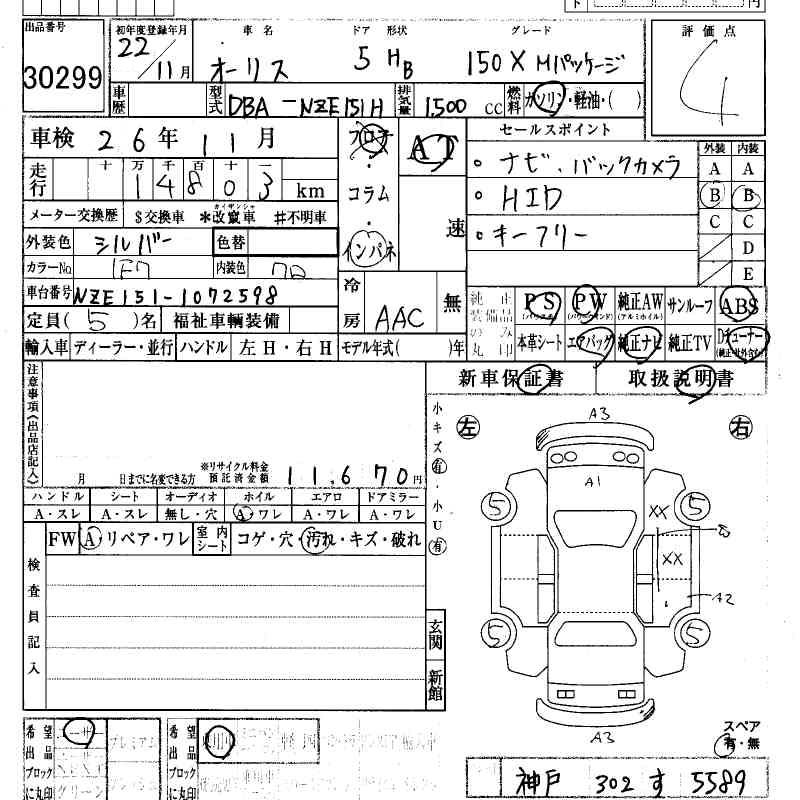 出品番号 初年度登録年月 車名 ドア 形状 グレード 評価点
30299 22/11月 オーリス 5 HB 150X Mパッケージ 4
車歴 型式 DBA-NZE151H 排気量 1,500 CC 燃料 ガソリン・軽油・( )
車検 26年11月 フロア AT セールスポイント 外装 内装
走行 十万千百十一 ・ナビ、バックカメラ A A
14803 km コラム ・HID B B
メーター交換歴 $交換車 *改竄車 カイザンシャ #不明車 速 ・キーフリー C C
外装色 シルバー 色替 インパネ D
カラーNo 1F7 内装色 E
車台番号 NZE151-1072598 冷房 AAC 無 純正装備品のみ丸印 PS (パワステ) PW (パワーウインド) 純正AW (アルミホイル) サンルーフ ABS
定員(5)名 福祉車輌装備 本革シート エアバッグ 純正ナビ 純正TV Dチューナー
輸入車 ディーラー・並行 ハンドル 左H・右H モデル年式( )年
新車保証書 取扱説明書
注意事項(出品店記入)
月 日までに名変できる方 ※リサイクル料金預託済金額 11,670円
小キズ有・小U有
左 右
A3
A1
ハンドル シート オーディオ ホイル エアロ ドアミラー
A・スレ A・スレ 無し・穴 A・ワレ A・ワレ A・ワレ
5 5
XX
FW A・リペア・ワレ 室内シート コゲ・穴・汚れ・キズ・破れ
XX
A2
検査員記入
5 5
玄関 新館
A3
スペア
有・無
希望出品ブロックに丸印 希望出品ブロックに丸印
神戸 302 す 5589